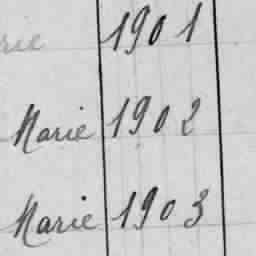 rie 1901
Marie 1902
Marie 1903